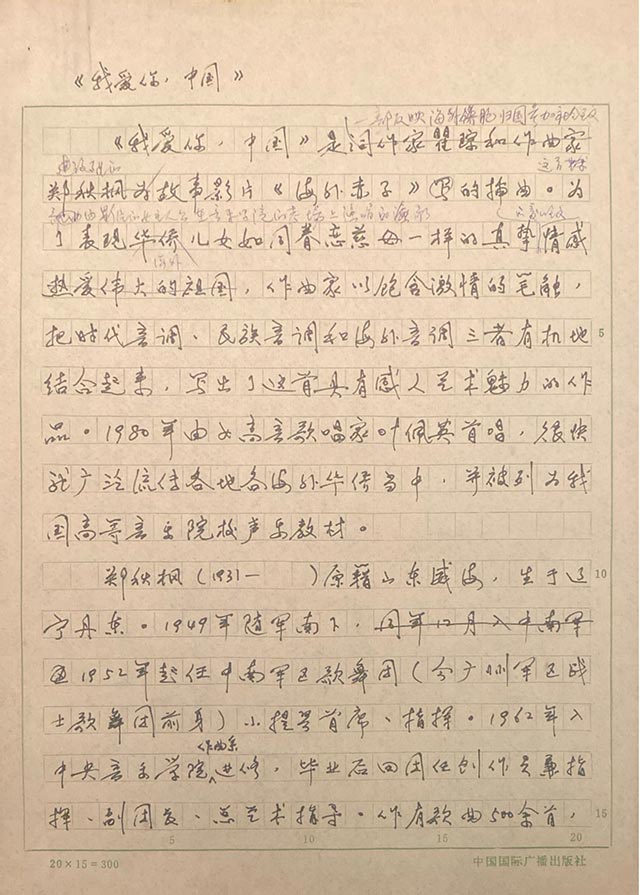 《我爱你,中国》
一部反映海外侨胞归国参加
《我爱你,中国》是词作家瞿琮和作曲家
这首
郑秋枫为故事影片《海外赤子》写的插曲。为
了表现华侨儿女如同眷恋慈母一样的真挚情感
海外
热爱伟大的祖国,作曲家以饱含激情的笔触,
把时代音调、民族音调和海外音调三者有机地 5
结合起来,写出了这首具有感人艺术魅力的作
品。1980年由女高音歌唱家叶佩英首唱,很快
就广泛流传各地各海外华侨当中,并被列为我
国高等音乐院校声乐教材。
郑秋枫(1931— )原籍山东威海,生于辽 10
宁丹东。1949年随军南下,同年12月入中南军
区1952年起任中南军区歌舞团(今广州军区战
士歌舞团前身)小提琴首席、指挥。1962年入
作曲系
中央音乐学院进修,毕业后回团任创作员兼指
挥、副团长、总艺术指导。作有歌曲500余首, 15
5 10 15 20
20×15=300 中国国际广播出版社